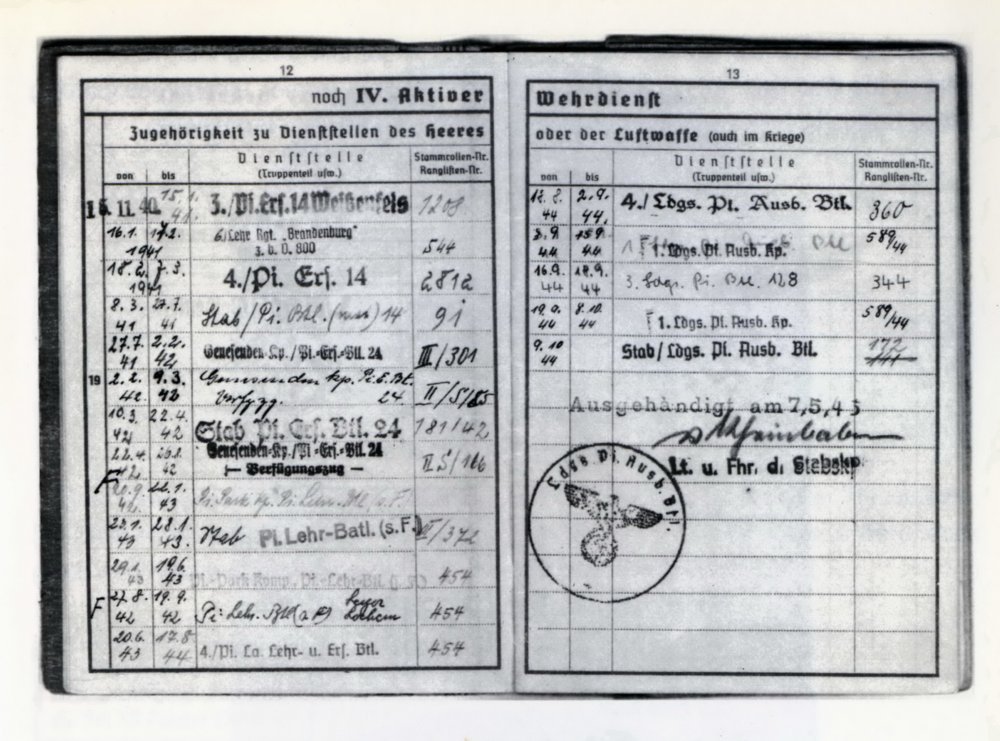 12
noch IV. Aktiver
Zugehörigkeit zu Dienststellen des Heeres
von bis Dienststelle (Truppenteil usw.) Stammrollen-Nr. Ranglisten-Nr.
11. 40. 15.1. 41. 3./Pi.Ers.14 Weißenfels 1208
16.1. 17.2. 1941 6/Lehr Rgt. „Brandenburg" z. b. V. 800 544
18.2. 7.3. 1941 4./Pi. Ers. 14 2812
8.3. 41 27.7. 41 Stab / Pi. Btl. 14 91
27.7. 41 2.2. 42 Genesenden-Kp./Pi.-Ers.-Btl. 24 III/301
19 2.2. 42. 9.3. 42 Genesenden Kp. Pi. E. Bt. 24 II/S/85
10.3. 42 22.4. 42 Stab Pi. Ers. Btl. 24 181/42
22.4. 42. 42 Genesenden-Kp./Pi-Ers.-Btl. 24 Verfügungszug II S/166
F 20.9. 42 22.1. 43 Pi. Park Kp. Pi. Lehr. Btl.
23.1. 43 28.1. 43. Stab Pi. Lehr-Batl. (s.F.) II/372
29.1. 43 19.6. 43 Pi.-Park Komp., Pi.-Lehr-Btl. 454
F 27.8. 42 19.9. 42 Pi. Lehr. 454
20.6. 43 17.8 44 4./Pi. La. Lehr- u. Ers. Btl. 454
13
Wehrdienst
oder der Luftwaffe (auch im Kriege)
von bis Dienststelle (Truppenteil usw.) Stammrollen-Nr. Ranglisten-Nr.
18.8. 44 2.9. 44. 4./ Ldgs. Pi. Ausb. Btl. 360
3.9. 44 15.9. 44 1. Ldgs. Pi. Ausb. Kp. 589/44
16.9. 44 18.9. 44 3. Ldgs. Pi. Btl. 128 344
19.9. 44 8.10. 44 1. Ldgs. Pi. Ausb. Kp. 589/44
9.10 44 Stab / Ldgs. Pi. Ausb. Btl. 172
Ausgehändigt am 7.5.45
Lt. u. Fhr. d. Stabskp.
Ldgs. Pi. Ausb. Btl.